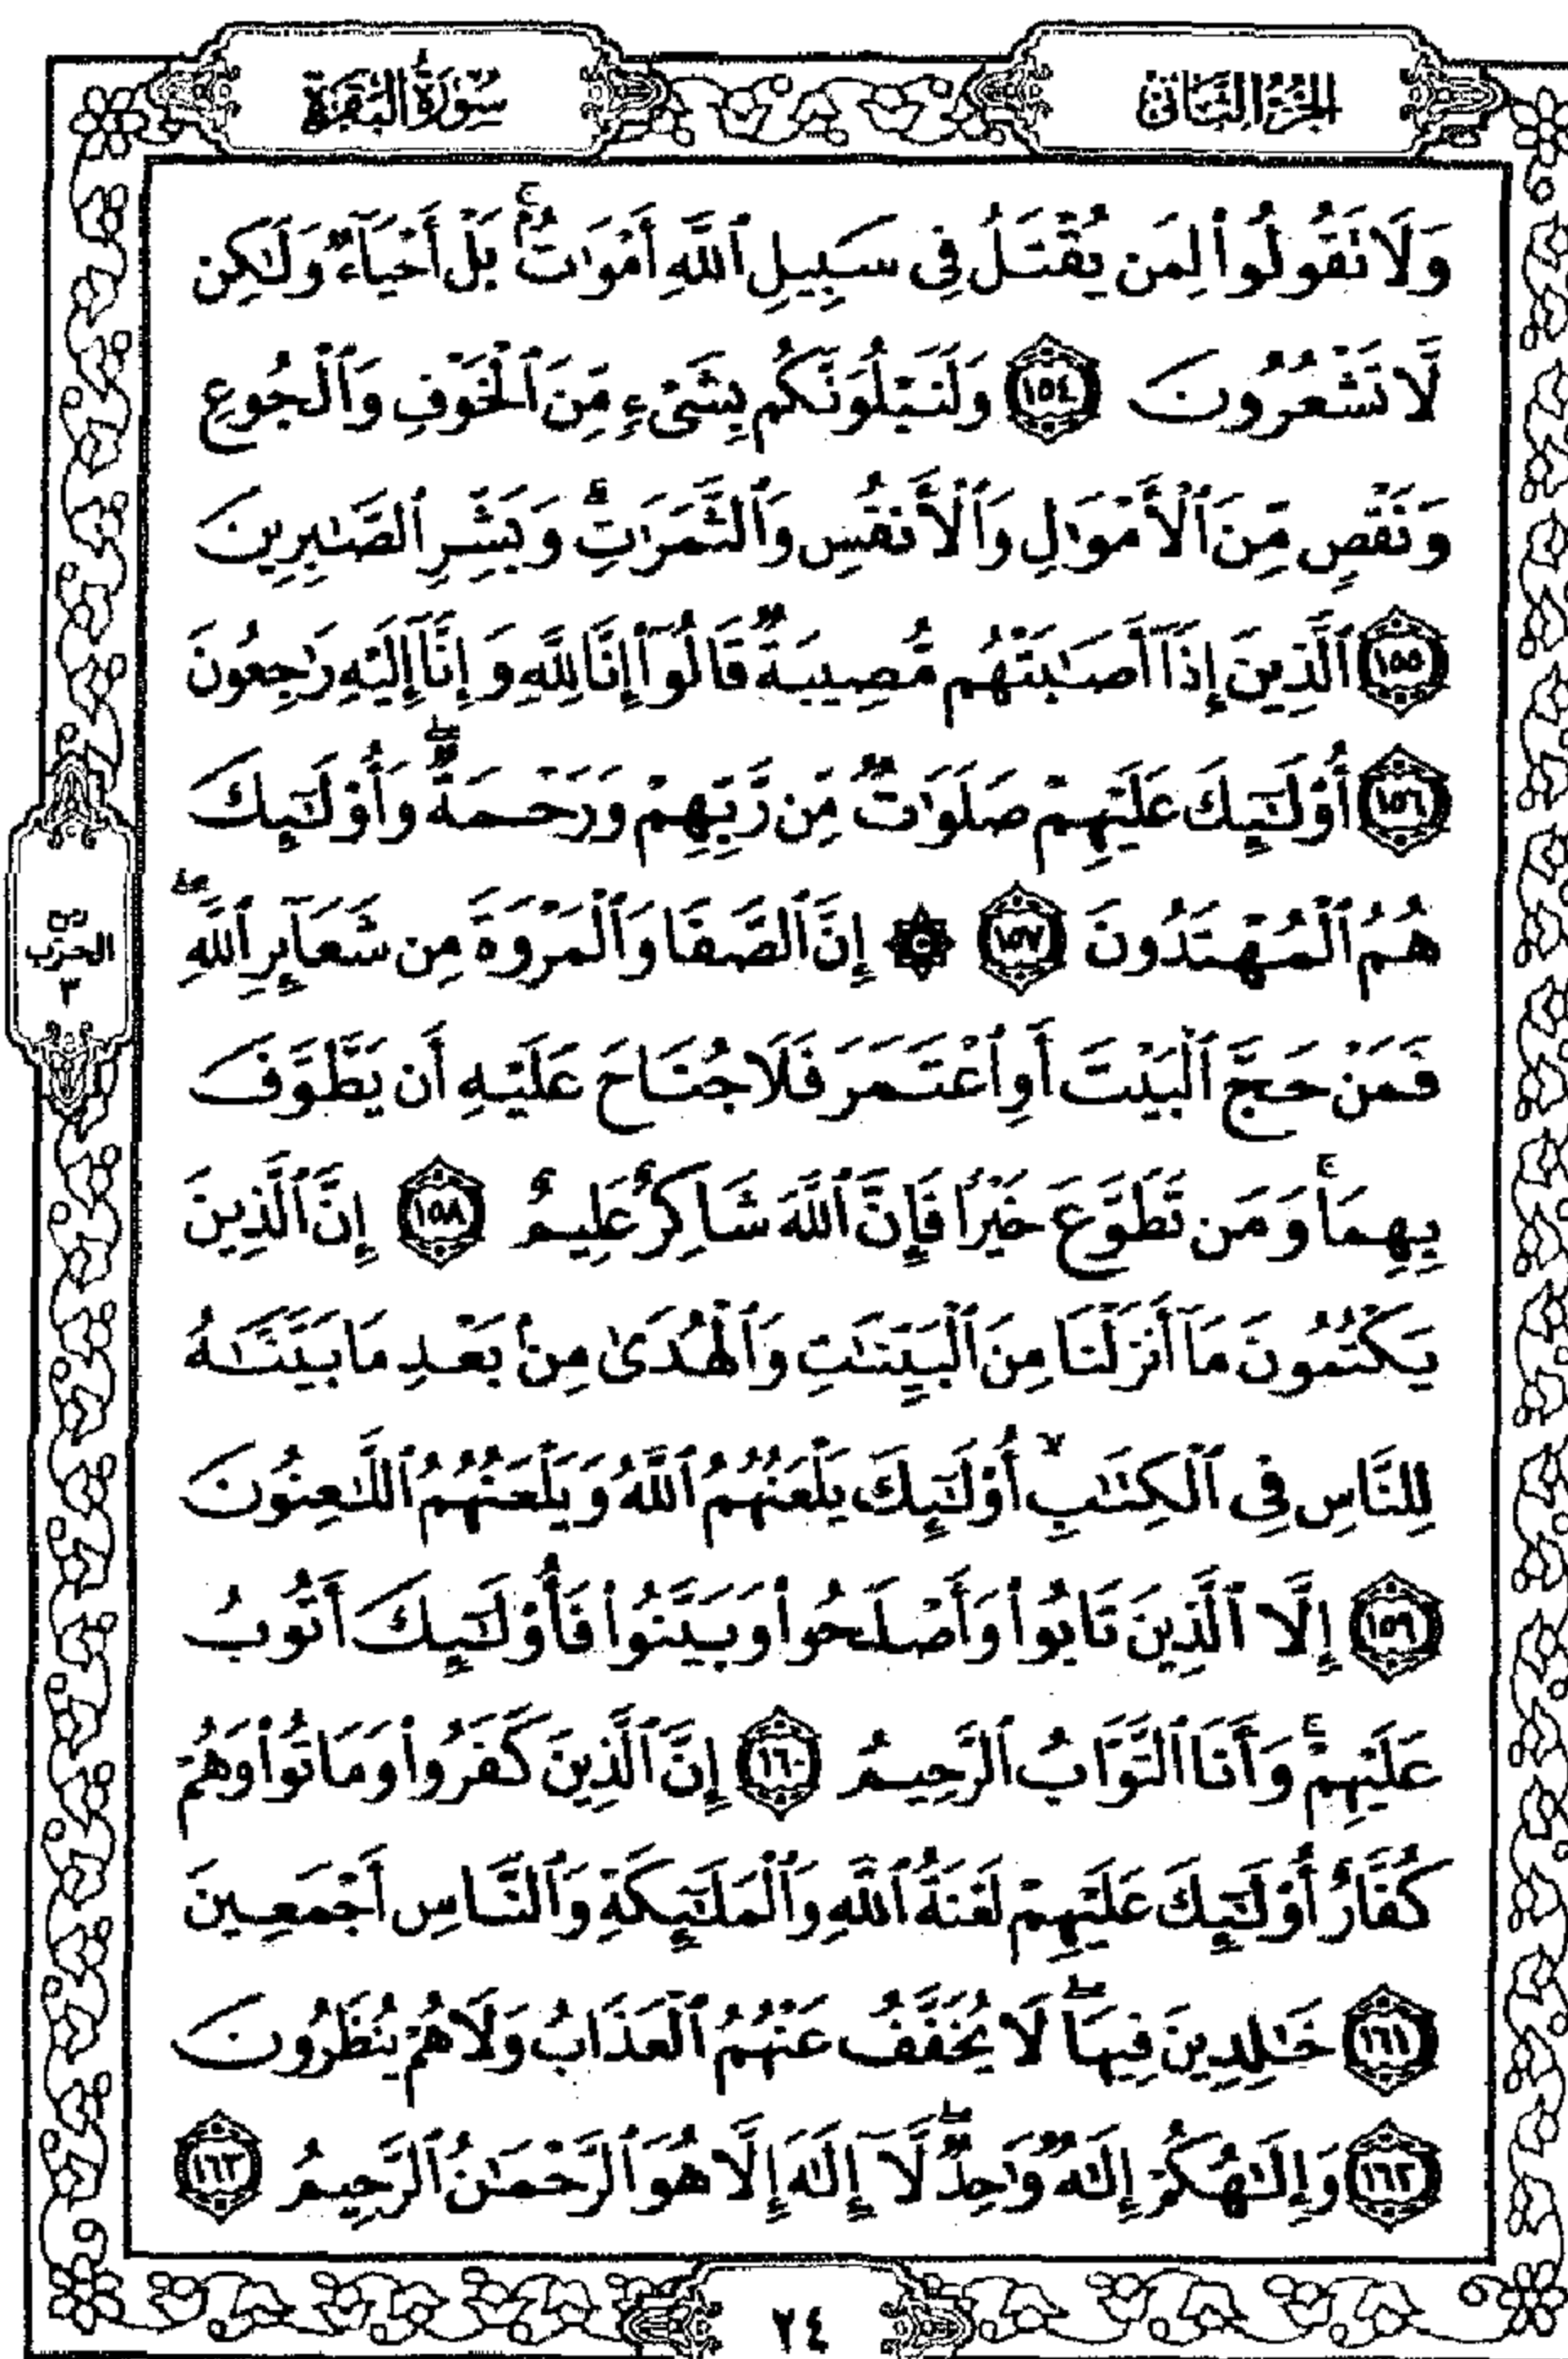 الجزء الثاني
سورة البقرة
وَلَا تَقُولُوا۟ لِمَن يُقْتَلُ فِى سَبِيلِ ٱللَّهِ أَمْوَٰتٌۢ ۚ بَلْ أَحْيَآءٌ وَلَـٰكِن
لَّا تَشْعُرُونَ ١٥٤ وَلَنَبْلُوَنَّكُم بِشَىْءٍ مِّنَ ٱلْخَوْفِ وَٱلْجُوعِ
وَنَقْصٍ مِّنَ ٱلْأَمْوَٰلِ وَٱلْأَنفُسِ وَٱلثَّمَرَٰتِ ۗ وَبَشِّرِ ٱلصَّـٰبِرِينَ
١٥٥ ٱلَّذِينَ إِذَآ أَصَـٰبَتْهُم مُّصِيبَةٌ قَالُوٓا۟ إِنَّا لِلَّهِ وَإِنَّآ إِلَيْهِ رَٰجِعُونَ
١٥٦ أُو۟لَـٰٓئِكَ عَلَيْهِمْ صَلَوَٰتٌ مِّن رَّبِّهِمْ وَرَحْمَةٌ ۖ وَأُو۟لَـٰٓئِكَ
هُمُ ٱلْمُهْتَدُونَ ١٥٧ ۞ إِنَّ ٱلصَّفَا وَٱلْمَرْوَةَ مِن شَعَآئِرِ ٱللَّهِ ۖ
فَمَنْ حَجَّ ٱلْبَيْتَ أَوِ ٱعْتَمَرَ فَلَا جُنَاحَ عَلَيْهِ أَن يَطَّوَّفَ
بِهِمَا ۚ وَمَن تَطَوَّعَ خَيْرًا فَإِنَّ ٱللَّهَ شَاكِرٌ عَلِيمٌ ١٥٨ إِنَّ ٱلَّذِينَ
يَكْتُمُونَ مَآ أَنزَلْنَا مِنَ ٱلْبَيِّنَـٰتِ وَٱلْهُدَىٰ مِنۢ بَعْدِ مَا بَيَّنَّـٰهُ
لِلنَّاسِ فِى ٱلْكِتَـٰبِ ۙ أُو۟لَـٰٓئِكَ يَلْعَنُهُمُ ٱللَّهُ وَيَلْعَنُهُمُ ٱللَّـٰعِنُونَ
١٥٩ إِلَّا ٱلَّذِينَ تَابُوا۟ وَأَصْلَحُوا۟ وَبَيَّنُوا۟ فَأُو۟لَـٰٓئِكَ أَتُوبُ
عَلَيْهِمْ ۚ وَأَنَا ٱلتَّوَّابُ ٱلرَّحِيمُ ١٦٠ إِنَّ ٱلَّذِينَ كَفَرُوا۟ وَمَاتُوا۟ وَهُمْ
كُفَّارٌ أُو۟لَـٰٓئِكَ عَلَيْهِمْ لَعْنَةُ ٱللَّهِ وَٱلْمَلَـٰٓئِكَةِ وَٱلنَّاسِ أَجْمَعِينَ
١٦١ خَـٰلِدِينَ فِيهَا ۖ لَا يُخَفَّفُ عَنْهُمُ ٱلْعَذَابُ وَلَا هُمْ يُنظَرُونَ
١٦٢ وَإِلَـٰهُكُمْ إِلَـٰهٌ وَٰحِدٌ ۖ لَّآ إِلَـٰهَ إِلَّا هُوَ ٱلرَّحْمَـٰنُ ٱلرَّحِيمُ ١٦٣
ربع
الحزب
٣
٢٤